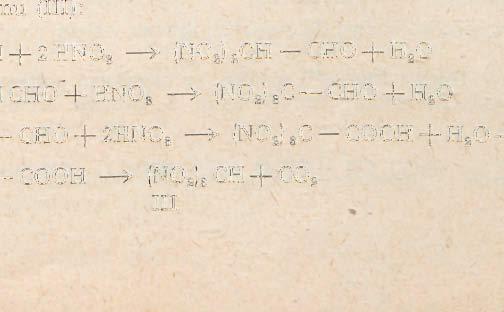 (III):
+ 2 HNO₃ → (NO₂)₂CH — CHO + H₂O
CHO + HNO₃ → (NO₂)₃C — CHO + H₂O
— CHO + 2HNO₃ → (NO₂)₃C — COOH + H₂O
— COOH → (NO₂)₃ CH + CO₂
III